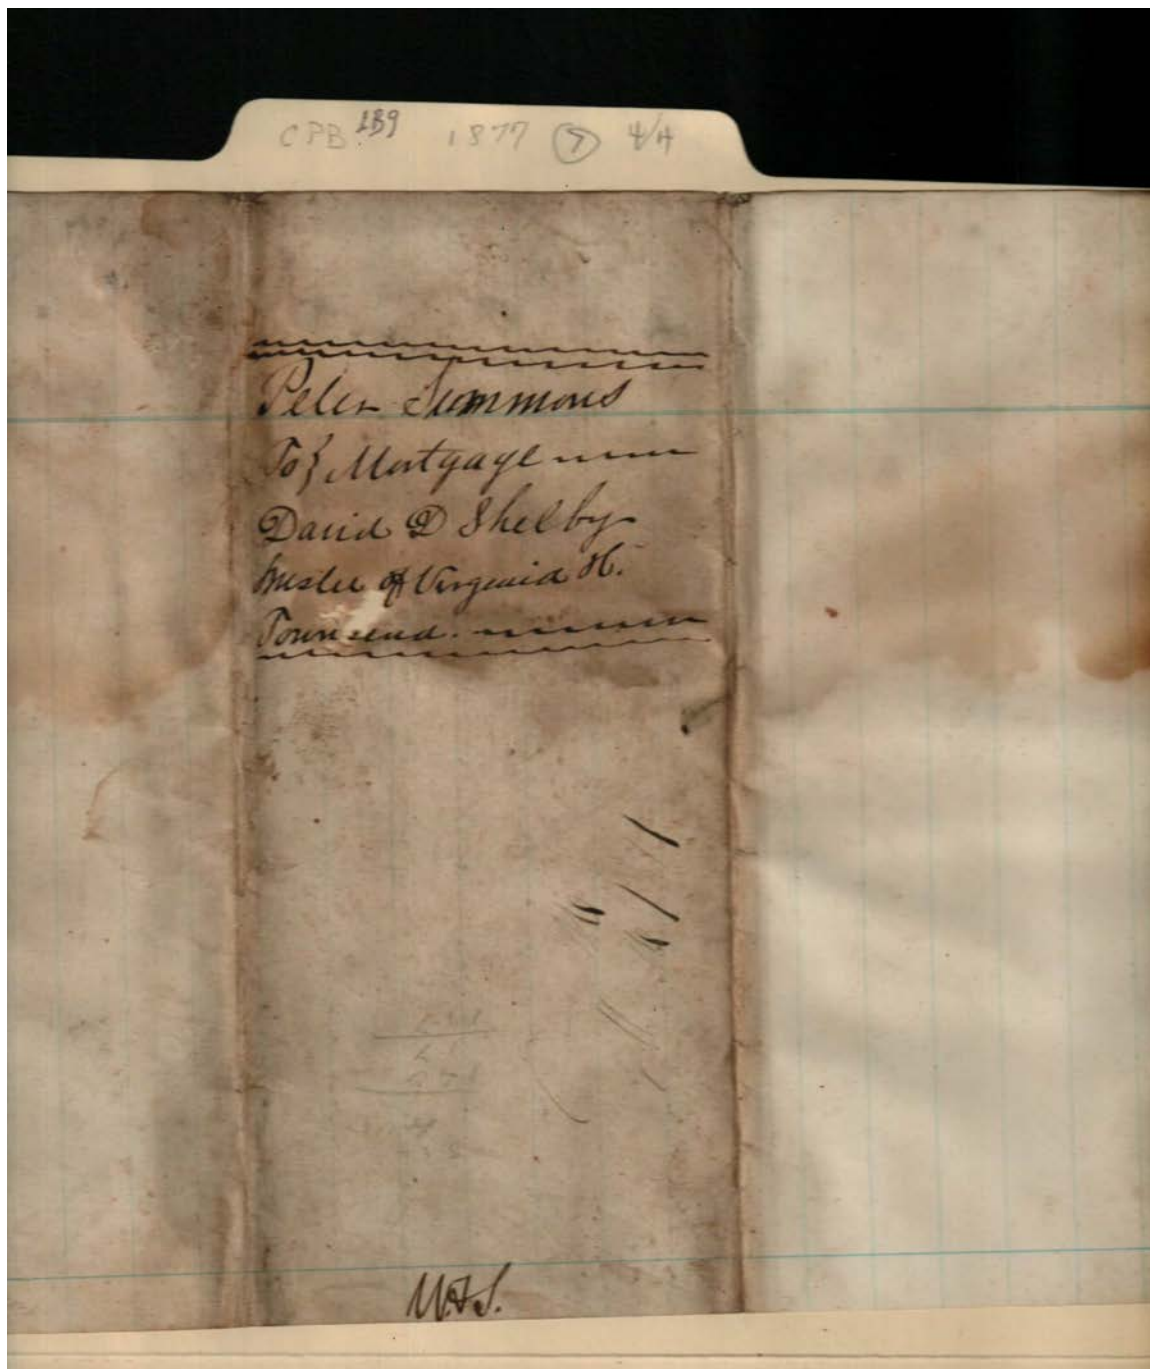 CPB LB9 1877 7 4/4
Peter Simmons
To} Mortgage
David D Shelby
trustee of Virginia H.
Townsend.